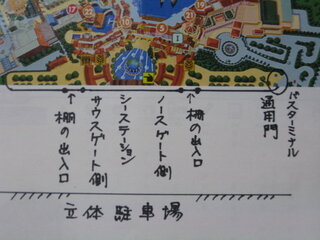 バスターミナル
通用門
↑棚の出入口
ノースゲート側
シーステーション
サウスゲート側
↑棚の出入口
立体駐車場